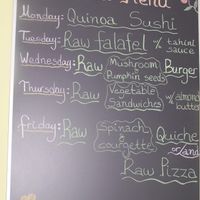 Menu
Monday: Quinoa Sushi
Tuesday: Raw falafel w/ tahini sauce
Wednesday: Raw Mushroom & Pumpkin seeds Burger
Thursday: Raw Vegetable Sandwiches w/ almond butter
Friday: Raw Spinach & courgette Quiche
or/and
Raw Pizza